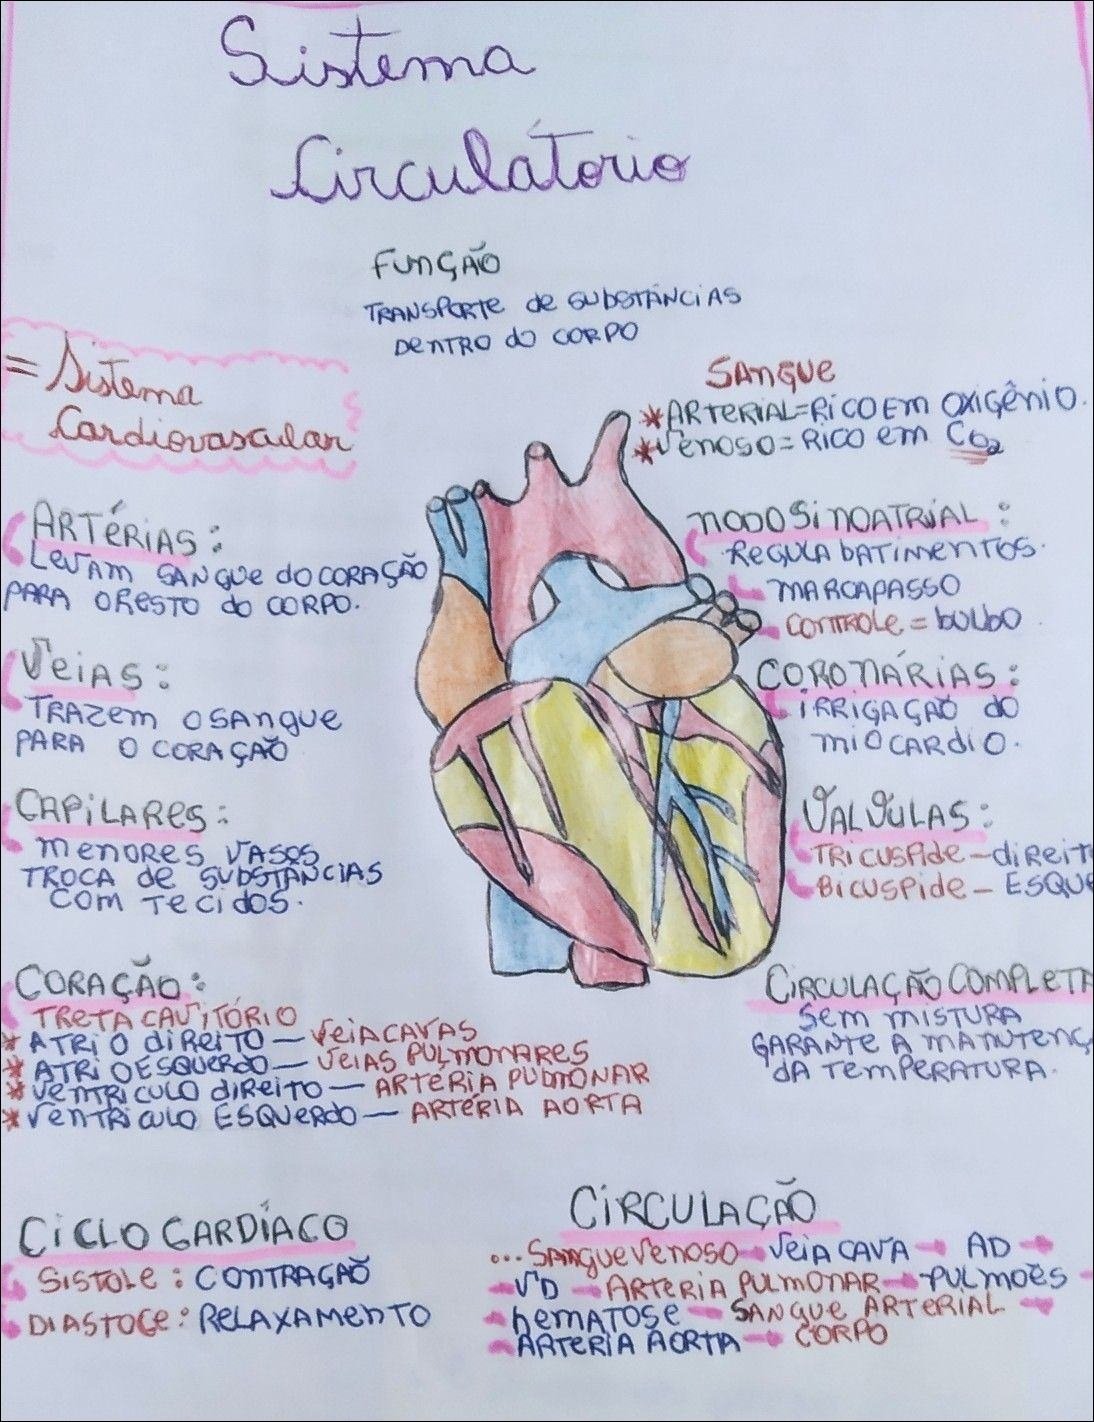 Sistema
Circulatório
FUNÇÃO
TRANSPORTE de SUBSTÂNCIAS
DENTRO do CORPO
= Sistema
Cardiovascular
SANGUE
*ARTERIAL=RICO EM OXIGÊNIO.
*VENOSO=RICO em CO₂
ARTÉRIAS:
LEVAM SANGUE do CORAÇÃO
PARA O RESTO do CORPO.
VEIAS:
TRAZEM O SANGUE
PARA O CORAÇÃO
CAPILARES:
MENORES VASOS
TROCA de SUBSTÂNCIAS
COM TECIDOS.
NODO SINOATRIAL:
REGULA BATIMENTOS.
MARCAPASSO
CONTROLE = BULBO.
CORONÁRIAS:
IRRIGAÇÃO do
MIOCARDIO.
VALVULAS:
TRICUSPIDE – DIREIT
BICUSPIDE – ESQUE
CORAÇÃO:
TRETACAVITÓRIO
* ATRIO DIREITO — VEIA CAVAS
* ATRIO ESQUERDO — VEIAS PULMONARES
* VENTRICULO DIREITO — ARTERIA PULMONAR
* VENTRICULO ESQUERDO — ARTÉRIA AORTA
CIRCULAÇÃO COMPLETA
SEM MISTURA
GARANTE A MANUTENÇ
DA TEMPERATURA.
CICLO CARDÍACO
SISTOLE: CONTRAÇÃO
DIASTOLE: RELAXAMENTO
CIRCULAÇÃO
...SANGUE VENOSO → VEIA CAVA → AD →
→ VD → ARTERIA PULMONAR → PULMOES →
→ HEMATOSE → SANGUE ARTERIAL →
→ ARTERIA AORTA → CORPO